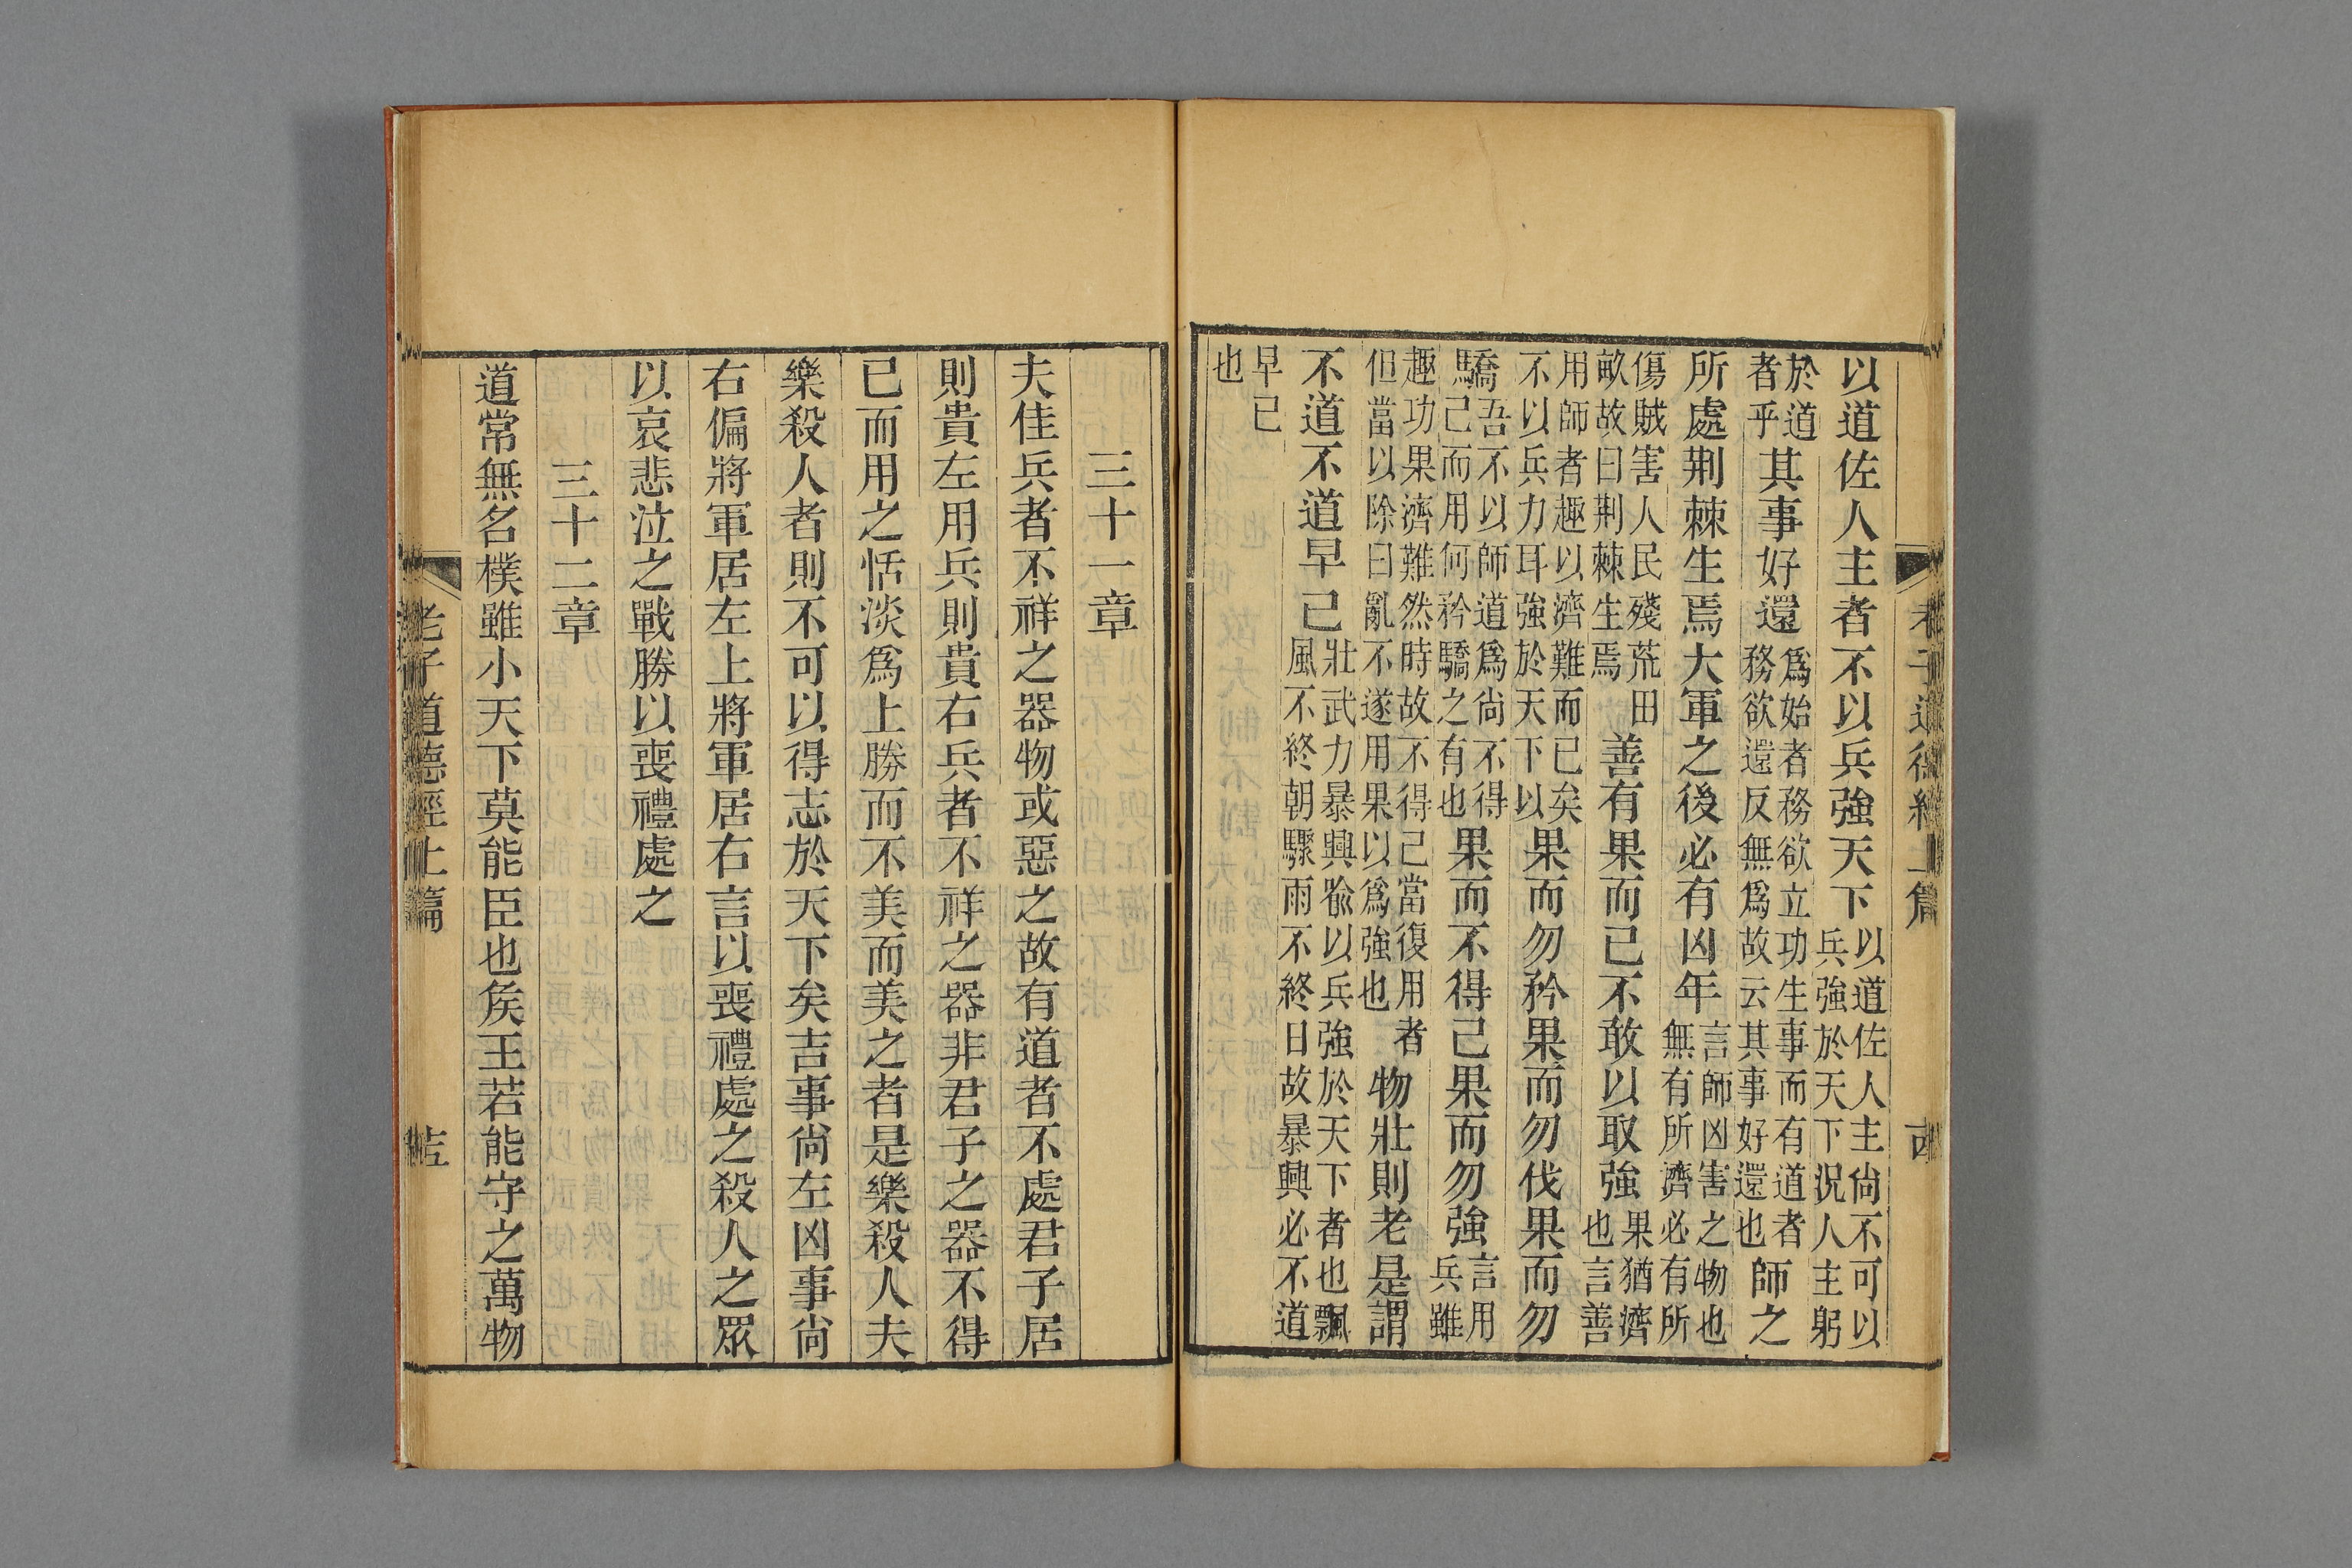 老子道德經上篇
以道佐人主者不以兵強天下以道佐人主尚不可以兵強於天下況人主躬
於道者乎其事好還爲始者務欲立功生事而有道者務欲還反無爲故云其事好還也師之
所處荆棘生焉大軍之後必有凶年言師凶害之物也無有所濟必有所
傷賊害人民殘荒田畝故曰荆棘生焉善有果而已不敢以取強果猶濟也言善
用師者趣以濟難而已矣不以兵力耳強於天下以果而勿矜果而勿伐果而勿
驕吾不以師道爲尚不得己而用何矜驕之有也果而不得已果而勿強言用兵雖
趣功果濟難然時故不得已當復用者但當以除曰亂不遂用果以爲強也物壯則老是謂
不道不道早已壯武力暴興喻以兵強於天下者也飄風不終朝驟雨不終日故暴興必不道
早已也
三十一章
夫佳兵者不祥之器物或惡之故有道者不處君子居
則貴左用兵則貴右兵者不祥之器非君子之器不得
已而用之恬淡爲上勝而不美而美之者是樂殺人夫
樂殺人者則不可以得志於天下矣吉事尚左凶事尚
右偏將軍居左上將軍居右言以喪禮處之殺人之眾
以哀悲泣之戰勝以喪禮處之
三十二章
道常無名樸雖小天下莫能臣也矦王若能守之萬物
老子道德經上篇